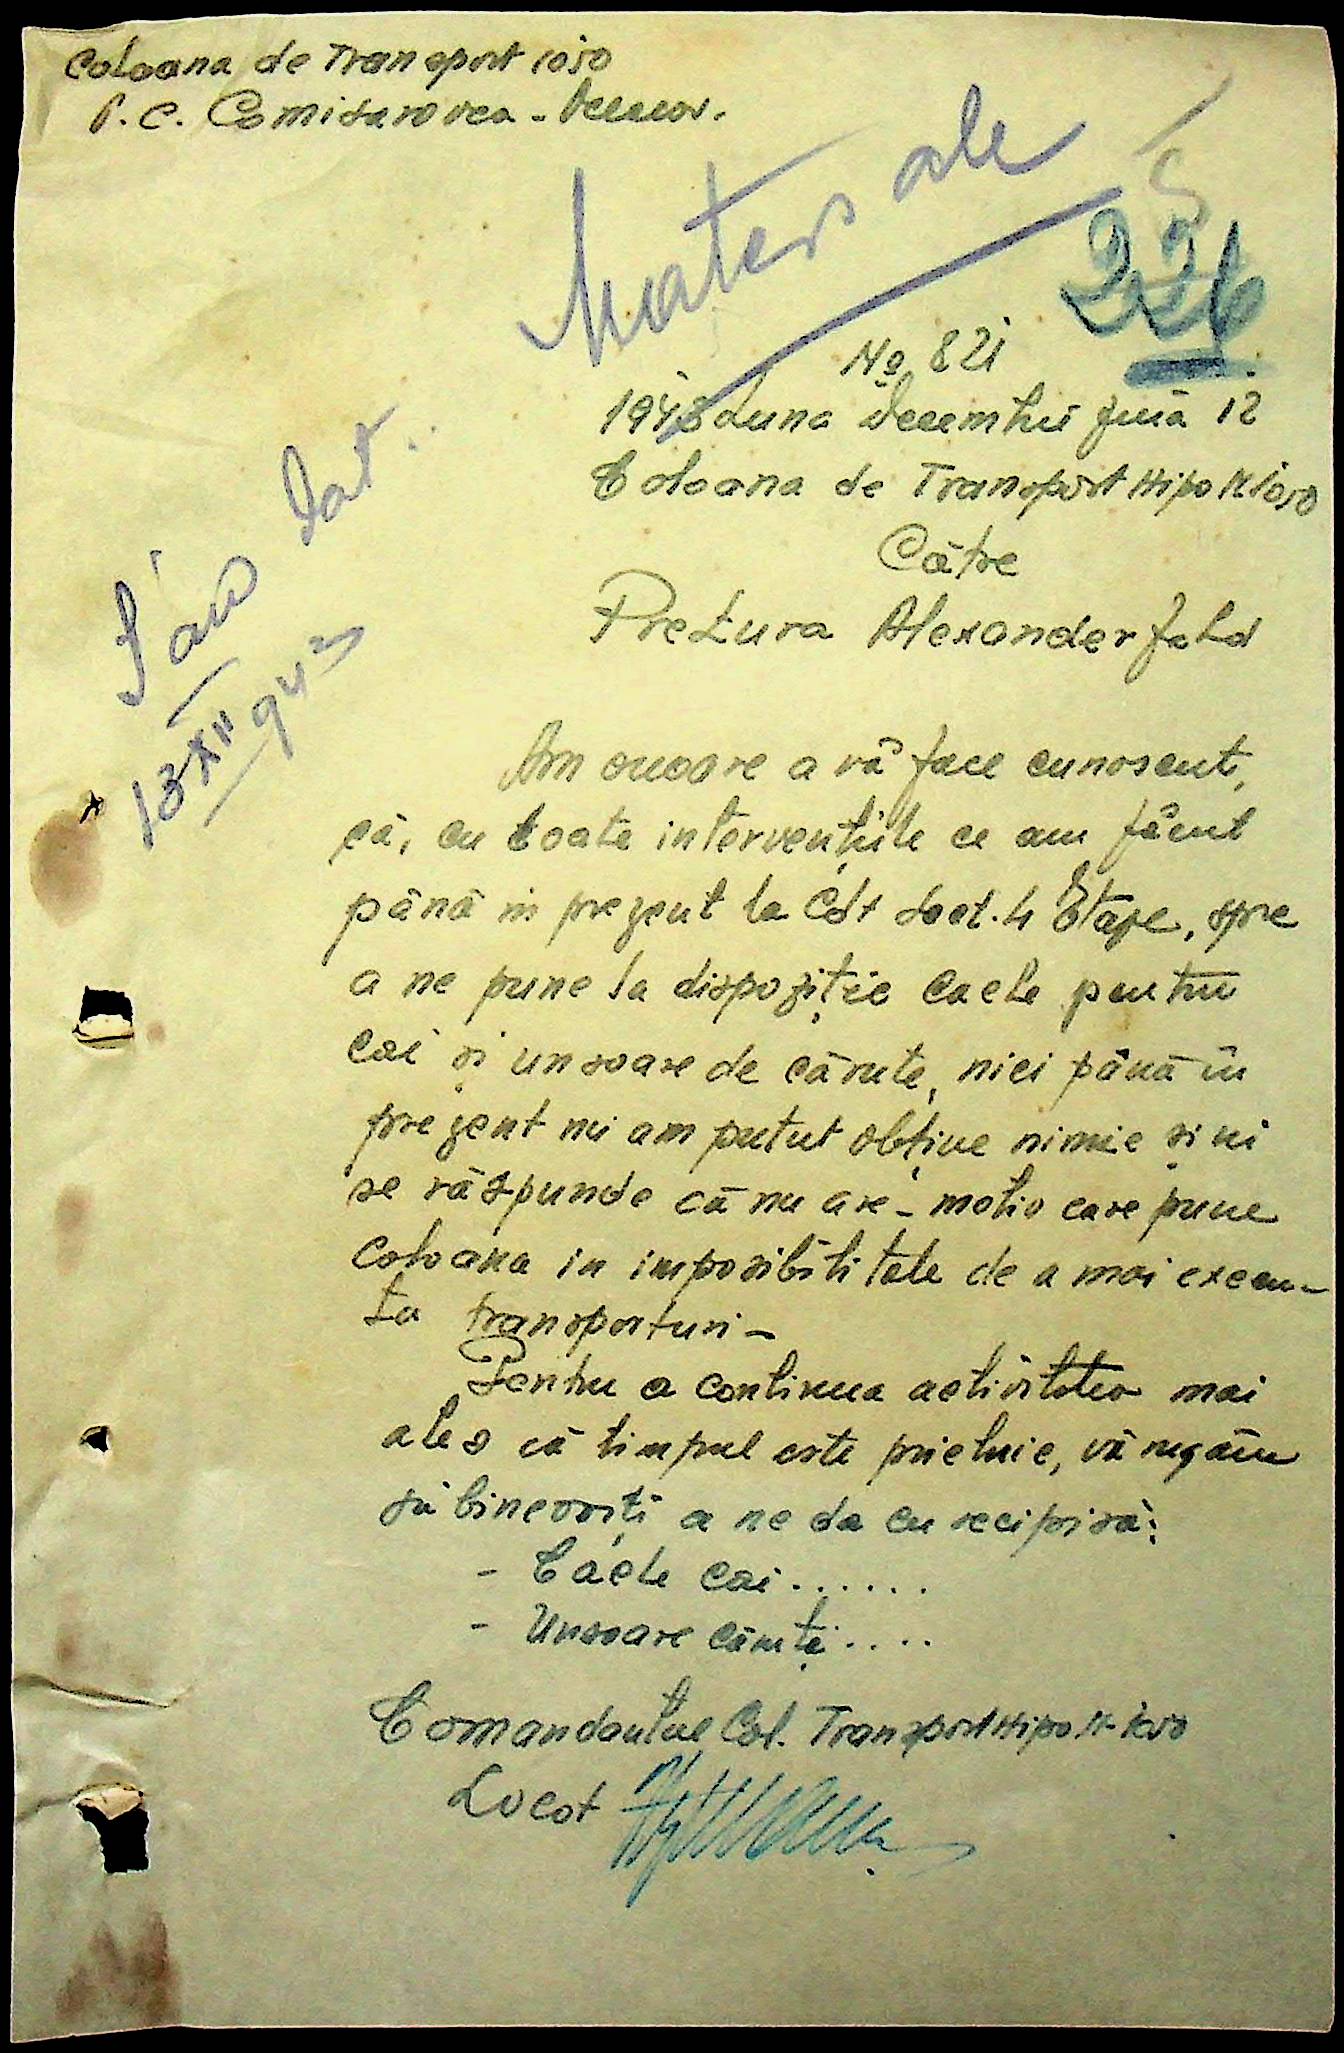 Coloana de Transport 1050
P.C. Comisarovca -
Materiale
226
No 821
1943 Luna Decembrie ziuă 12
Coloana de Transport Hipo N 1050
Către
Pretura Alexanderfeld
S'au dat..
13 XII 943
Am onoare a vă face cunoscut,
că, cu toate intervențiile ce am făcut
până in prezent la Cdt Sect. 4 Etape, spre
a ne pune la dispoziție Caele pentru
cai și unsoare de cărute, nici până în
prezent nu am putut obține nimic și ni
se răspunde că nu are - motiv care pune
Coloana in imposibilitate de a mai execu-
ta transporturi -
Pentru a continua activitatea mai
ales că timpul este prielnic, vă rugăm
să binevoiți a ne da cu recipisă:
- Caele Cai ......
- Unsoare Căruțe ....
Comandantul Col. Transport Hipo N- 1050
Locot